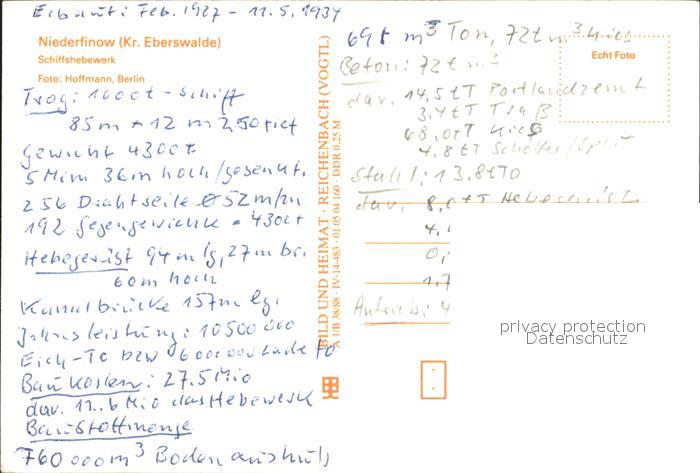 Erbaut: Feb. 1927 - 11.5.1934
Niederfinow (Kr. Eberswalde)
Schiffshebewerk
Foto: Hoffmann, Berlin
Trog: 1000t - Schiff
85m + 12 m 2,50 tief
Gewicht 4300t
5 Min 36m hoch/gesenkt.
256 Drahtseile Ø 52m/m
192 Gegengewichte = 4300t
Hebegerüst 94m lg, 27m br.
60m hoch
Kanalbrücke 157m lg.
Jahresleistung: 10500000
Eich-To bzw 6000000 Lade To
Baukosten: 27.5 Mio
dav. 11..6 Mio das Hebewerk
Baustoffmenge
760000m³ Bodenaushub
BILD UND HEIMAT · REICHENBACH (VOGTL)
A 1/B 38/88 · IV-14-483 · 01 05 04 160 · DDR 0,25 M
69t m³ Ton, 72t m³ Kies
Echt Foto
Beton: 72t m³
dav. 14,5tT Portlandzemt
3.4tT Traß
68,0tT Kies
4,8tT Schotter/Split
Stahl: 13.8tTo
dav. 8, tT Hebegerüst
4,
0,
1.7
4
privacy protection
Datenschutz